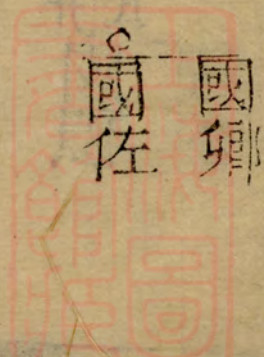 國卿
國佐